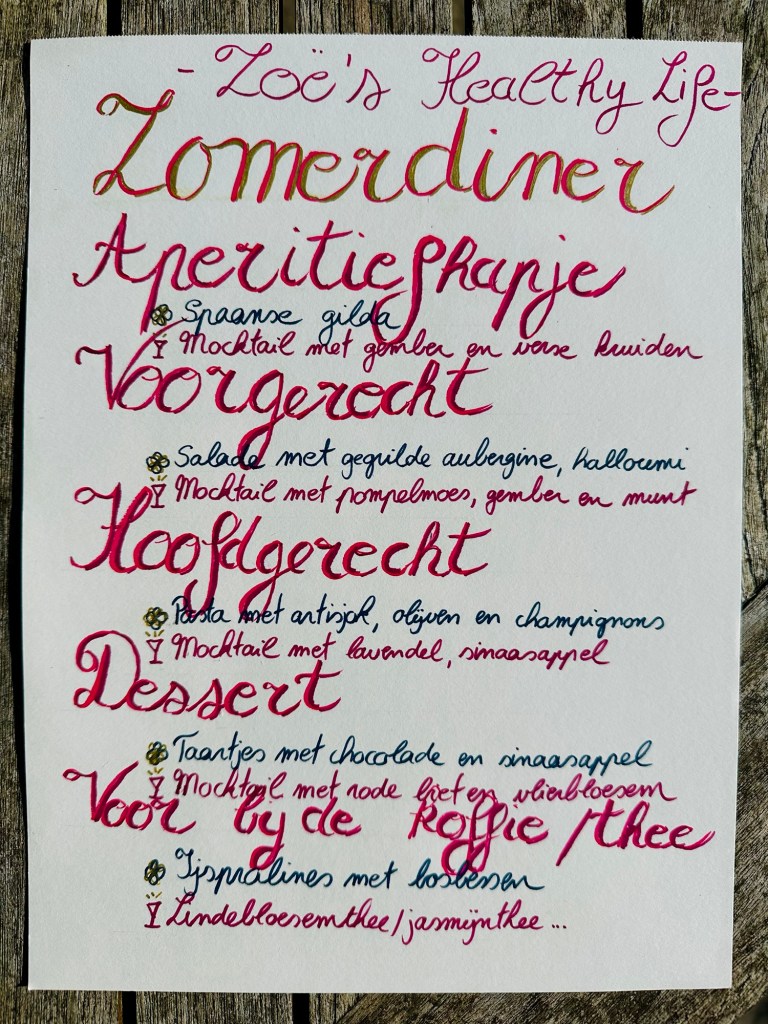 - Zoë's Healthy Life -
Zomerdiner
Aperitiefhapje
Spaanse gilda
Mocktail met gember en verse kruiden
Voorgerecht
Salade met gegrilde aubergine, halloumi
Mocktail met pompelmoes, gember en munt
Hoofdgerecht
Pasta met artisjok, olijven en champignons
Mocktail met lavendel, sinaasappel
Dessert
Taartjes met chocolade en sinaasappel
Mocktail met rode biet en vlierbloesem
Voor bij de koffie/thee
Ijspralines met bosbessen
Lindebloesemthee/jasmijnthee ...